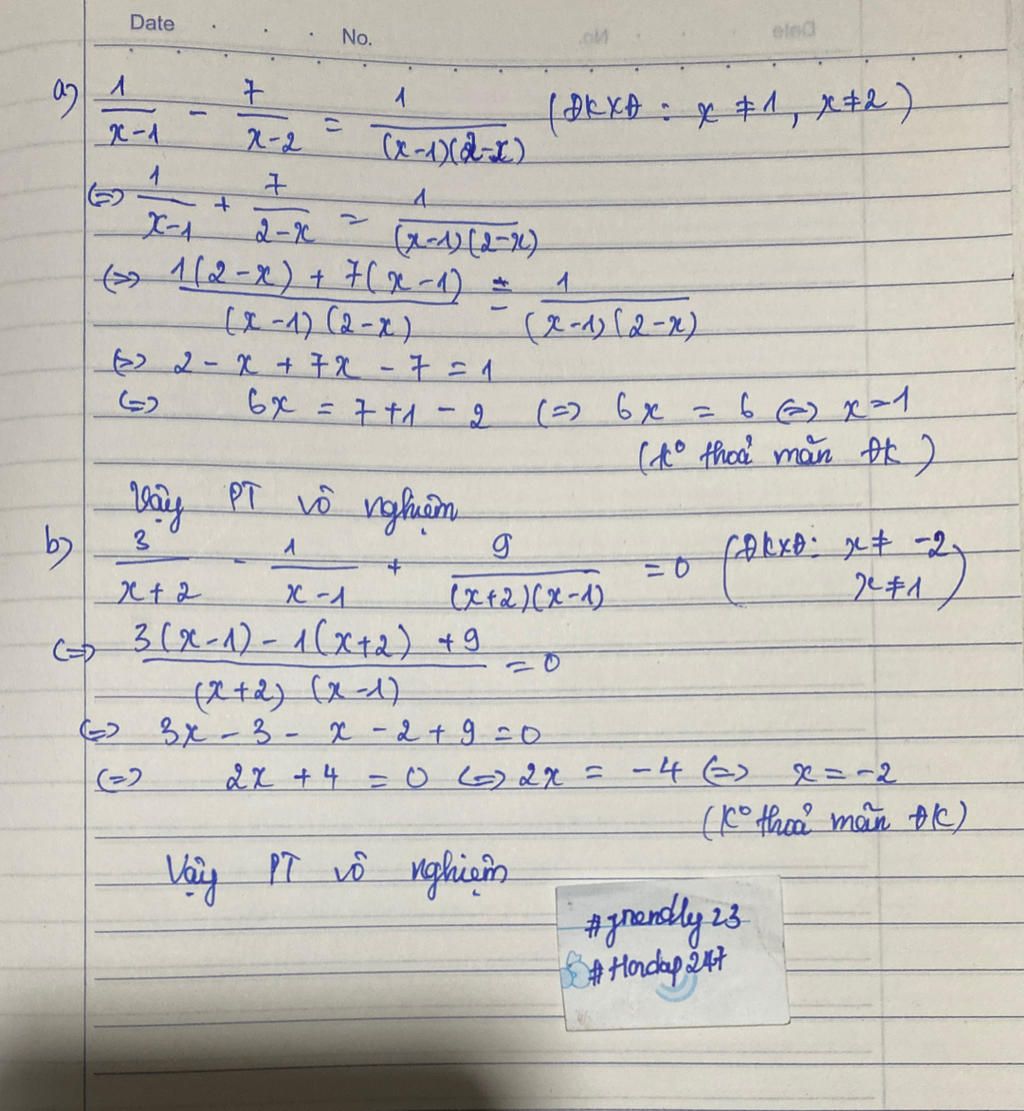 Date No.
a) 1/(x-1) - 7/(x-2) = 1/((x-1)(2-x)) (ĐKXĐ : x ≠ 1, x ≠ 2)
(=) 1/(x-1) + 7/(2-x) = 1/((x-1)(2-x))
(=) (1(2-x) + 7(x-1))/((x-1)(2-x)) = 1/((x-1)(2-x))
(=) 2 - x + 7x - 7 = 1
(=) 6x = 7 + 1 - 2 (=) 6x = 6 (=) x = 1
(k° thoả mãn ĐK)
Vậy PT vô nghiệm
b) 3/(x+2) - 1/(x-1) + 9/((x+2)(x-1)) = 0 (ĐKXĐ: x ≠ -2, x ≠ 1)
(=) (3(x-1) - 1(x+2) + 9)/((x+2)(x-1)) = 0
(=) 3x - 3 - x - 2 + 9 = 0
(=) 2x + 4 = 0 (=) 2x = -4 (=) x = -2
(K° thoả mãn ĐK)
Vậy PT vô nghiệm
23
247